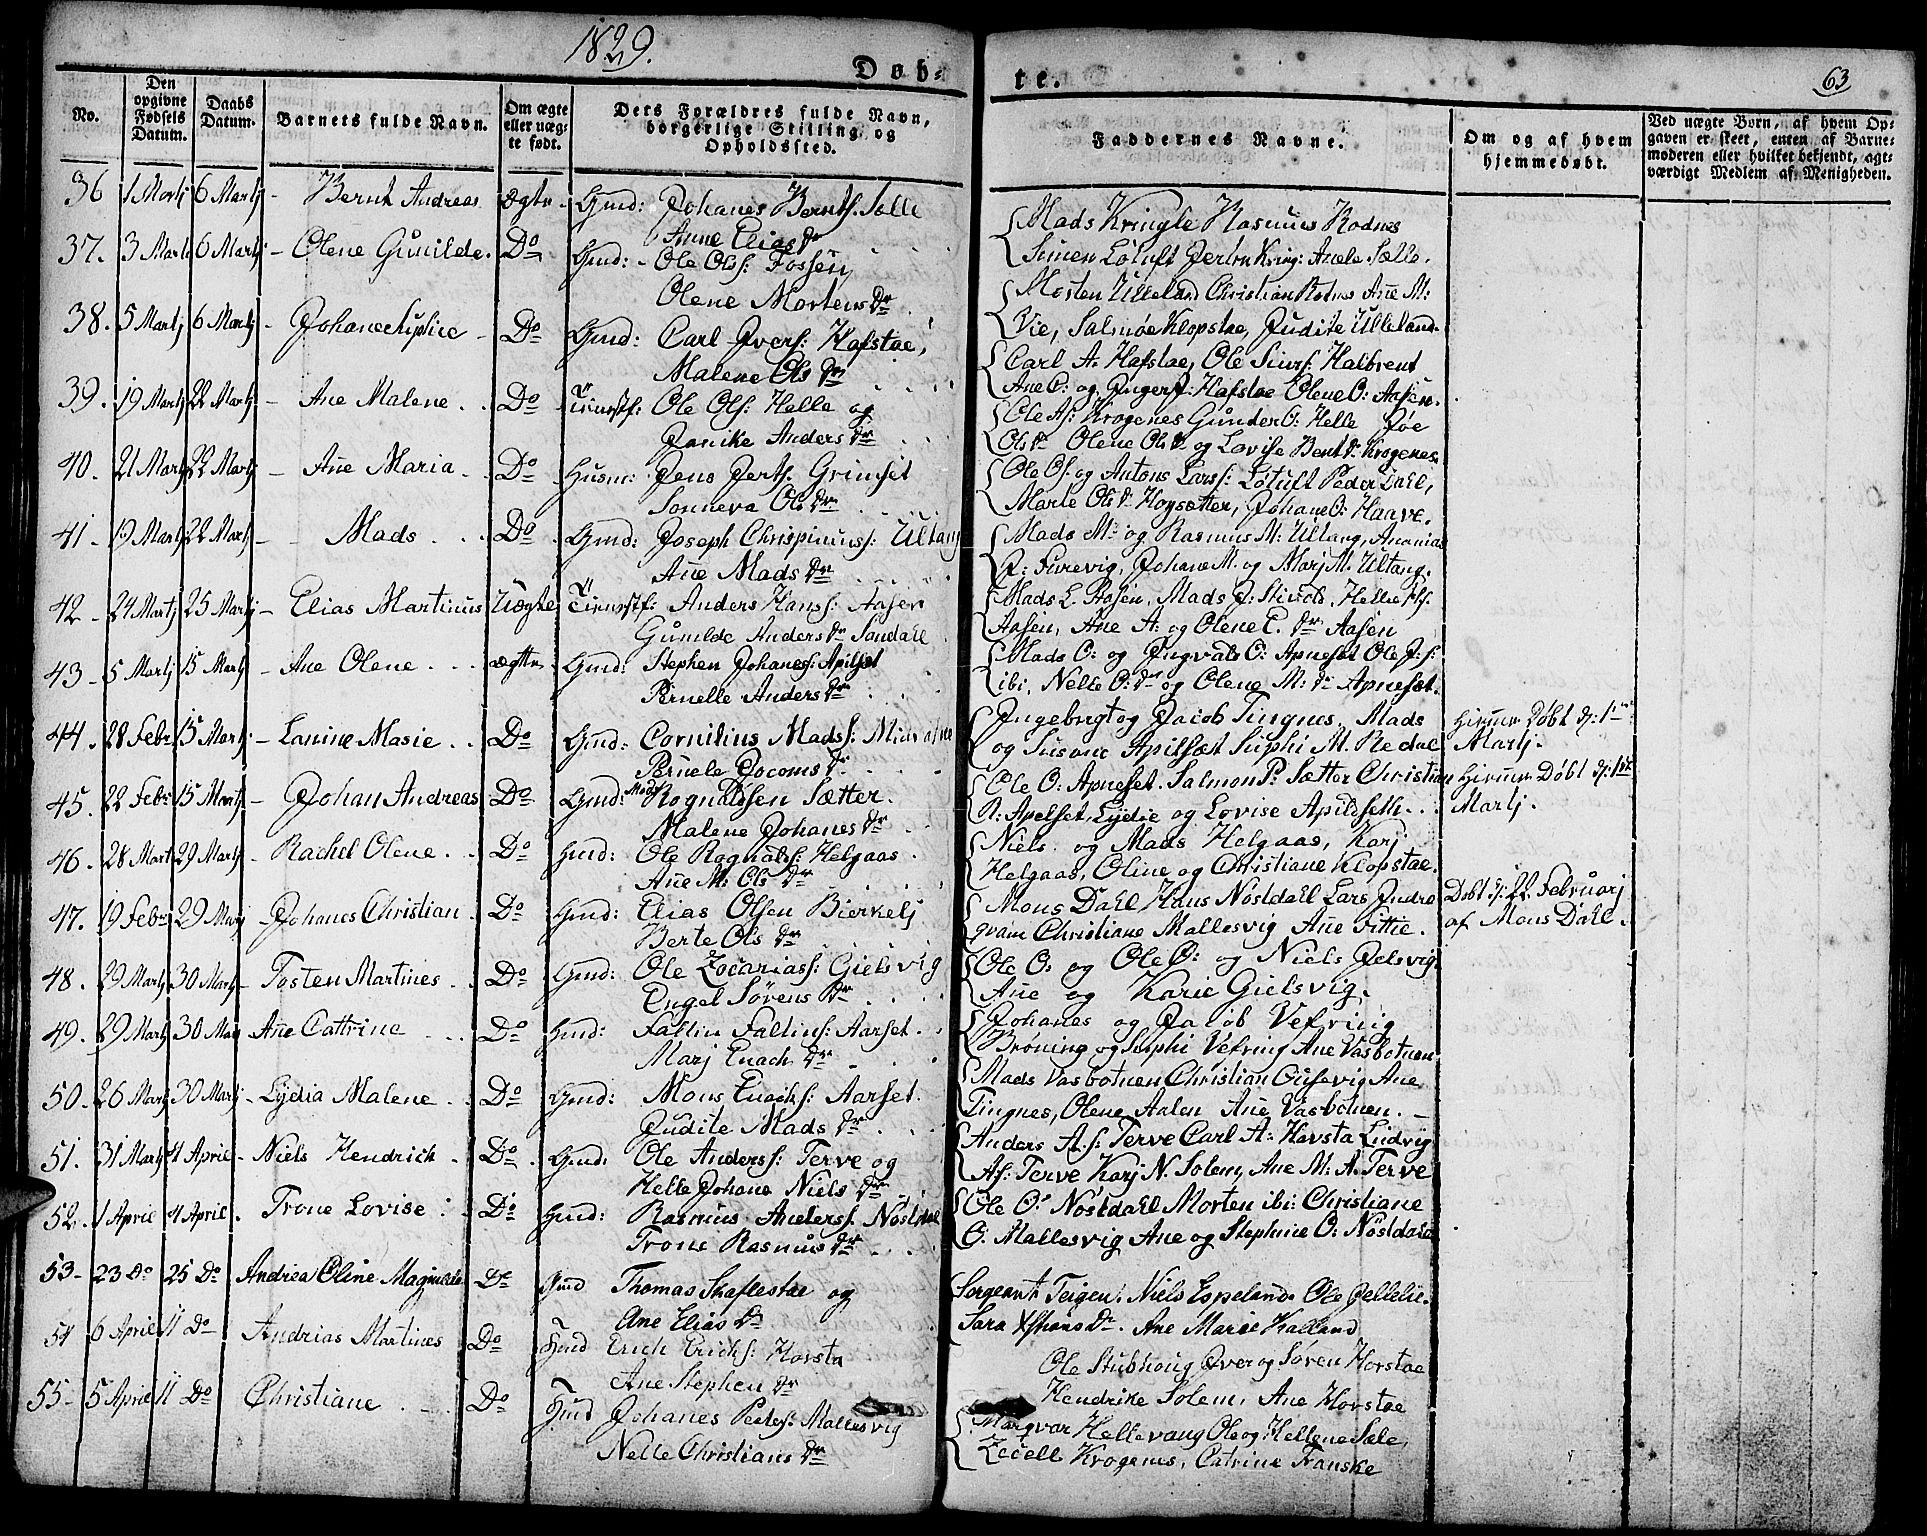 1829.
Døb-
te.
63
No.
Den opgivne Fødsels Datum.
Daabs Datum.
Barnets fulde Navn.
Om ægte eller uæg- te født.
Dets Forældres fulde Navn, borgerlige Stilling og Opholdssted.
Faddernes Navne.
Om og af hvem hjemmedøbt.
Ved uægte Børn, af hvem Op- gaven er skeet, enten af Barne- moderen eller hvilket bekjendt, agt- værdigt Medlem af Menigheden.
36 1 Martj 6 Martj - Bernt Andreas Ægte Gmd: Johanes Berntf. Sølle
Anne Elias Dr
Mads Kringle Rasmus Rodnes
Simen Løtuft
37. 3 Martj 6 Martj - Olene Gunilde. Do Gmd: - Ole Olsf: Fossen,
Olene Mortens Dr
Morten Ulleland Christian Rotnes Ane M:
Vie, Salmøe Klopstae, Judite Ulleland.
38. 5 Martj 6 Martj - Johane Suphie - Do Gmd: Carl Iversf: Hafstae,
Malene Ols Dr
Carl A. Hafstae, Ole Siursf: Halbrent
Ane O: og Inger J: Hafstae Olene O: Aasen.
39. 19 Martj 22 Martj - Ane Malene . . Do Tienestf: Ole Olsf: Helle og
Janike Anders Dr
Ole Af: Krogenes Gunder O: Helle
Ols Dr Olene Ols Dr og Lovise Bent Dr Krogenes.
40. 21 Martj 22 Martj - Ane Maria - . Do Husm: Jens Jertf. Grimset
Sonneva Ols Dr
Ole Of: og Antons Larsf: Løtuft Peder Dahl,
Marte Ols Dr Hoysætter, Johane O: Haave.
41. 19 Martj 22 Martj - Mads . . . Do Gmd: Joseph Chrispinusf: Ultang
Ane Mads Dr
Mads M: og Rasmus M: Ultang, Ananias
J: Furevig, Johane M. og Marj M. Ultang.
42. 24 Martj 25 Martj - Elias Martinus Uægte Tienestf: Anders Hansf: Aasen
Gunilde Anders Dr Sandahl
Mads E. Aasen, Mads J: Stivold, Helle
Aasen, Ane A: og Olene E. Dr Aasen
43. 5 Martj 15 Martj - Ane Olene . . . ægte Gmd: Stephen Johanesf: Apilset
Pernelle Anders Dr
Mads O: og Ingvald O: Apneset Ole J: f:
ibi, Nelle O: Dr og Olene M: Dr Apneset.
44. 28 Febr 15 Martj - Lanine Masie . . Do Gmd: Cornilius Madsf:
Pernele Jocoms Dr
Ingebrigt og Jacob Tingnes. Mads
og Susane Apilset Suphi M. Redal
Hiemme Døbt d: 1ste
Martj.
45. 22 Febr 15 Martj - Johan Andreas Do Gmd: Mads Rognaldsen Sætter.
Malene Johanes Dr
Ole O: Apneset. Salmon P: Sætter Christian
R: Apelset, Lydie og Lovise Apildseth. .
Hiemme Døbt d: 1ste
Martj.
46. 28 Mart 29 Martj - Rachel Olene . . Do Gmd: Ole Rognaldsf: Helgaas .
Ane M: Ols Dr
Niels og Mads Helgaas, Karj
Helgaas, Oline og Christiane Klopstae.
47. 19 Febr 29 Marj - Johanes Christian . Do Gmd: Elias Olsen Bierkelj
Berte Ols Dr
Mons Dahl Hans Nøsldahl Lars Indre
gvam Christiane Mallesvig Ane Fittie.
Døbt d: 22 Februarj
af Mons Dahl.
48. 29 Martj 30 Martj - Tosten Martines . . Do Gmd: Ole Zacariasf: Gielsvig
Engel Sørens Dr
Ole O: og Ole O: og Niels Jelsvig
Ane og Karie Gielsvig.
49. 29 Martj 30 Mar Ane Cattrine . . . Do Gmd: Faltin Faltinsf: Aarset.
Marj Enach Dr
Johanes og Jacob Vefring
Brøning og Suphi Vefring Ane Vasbotnen
50. 26 Marj 30 Martj - Lydia Malene . . Do Gmd: Mons Enachsf: Aarset.
Judite Mads Dr
Mads Vasbotnen Christian Gusevig Ane
Tingnes, Olene Aalen Ane Vasbotnen. -
51. 31 Martj 4 April - Niels Hendrich . Do Gmd: Ole Andersf: Terve og
Helle Johane Niels Dr
Anders A.f: Terve Carl A: Hovsta Ludvig
Af: Terve Karj N. Solem, Ane M: A. Terve
52. 1 April 4 April . Trone Lovise : Do Gmd: Rasmus Andersf. Nøsldal
Trone Rasmus Dr
Ole O: Nøsldahl Morten ibi: Christiane
O. Mallesvig Ane og Stephine O: Nøsldahl
53- 23 Do 25 Do Andrea Oline Magnilde Do Gmd Thomas Skaflestae og
Ane Elias Dr
Sergeant Teigen. Niels Espeland. Ole Jellelie.
Sara Dr. Ane Marie Kalland
54 6 April 11 Do Andrias Martines Do Gmd Erich Erichsf: Hovsta
Ane Stephen Dr
Ole Stubhoug Iver og Søren Hovstae
Hendrike Solem, Ane Hovstae
55- 5 April 11 Do Christiane . - . Do Gmd Johanes Pedersf: Mallesvig
Nelle Christians Dr
Margvar Hellevang Ole og Hellene Sæle,
Zecell Krogenes, Catrine Transke